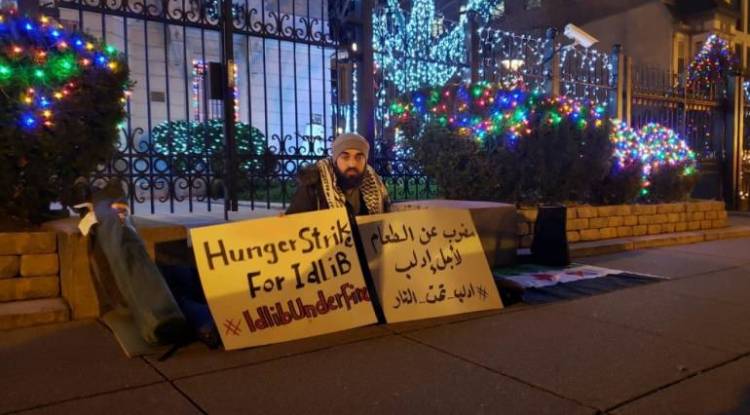 HungerStrike
For IdliB
#IdlibUnderFire
مضرب عن الطعام
لأجل إدلب
#ادلب_تحت_النار